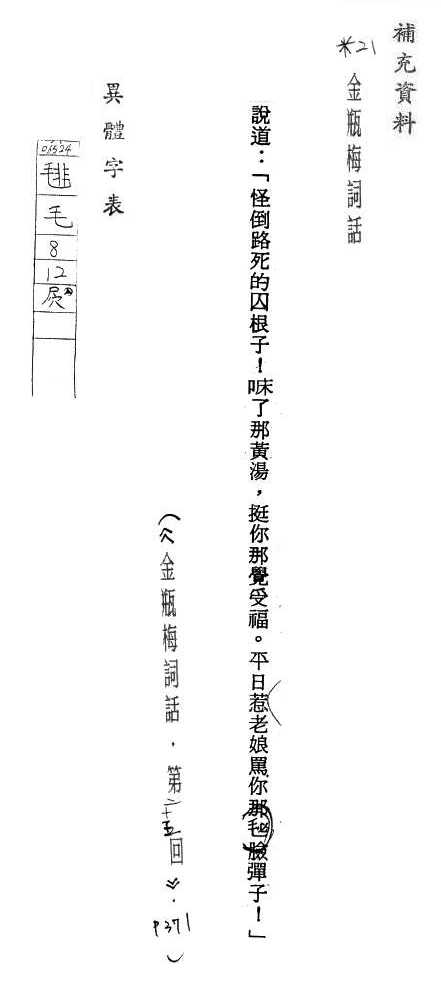 補充資料
*21 金瓶梅詞話
說道：「怪倒路死的囚根子！㕲了那黃湯，挺你那覺受福。平日惹老娘罵你那毴臉彈子！」
（《金瓶梅詞話．第二十五回》．P371）
異體字表
03524
毴
毛
8
12
屄